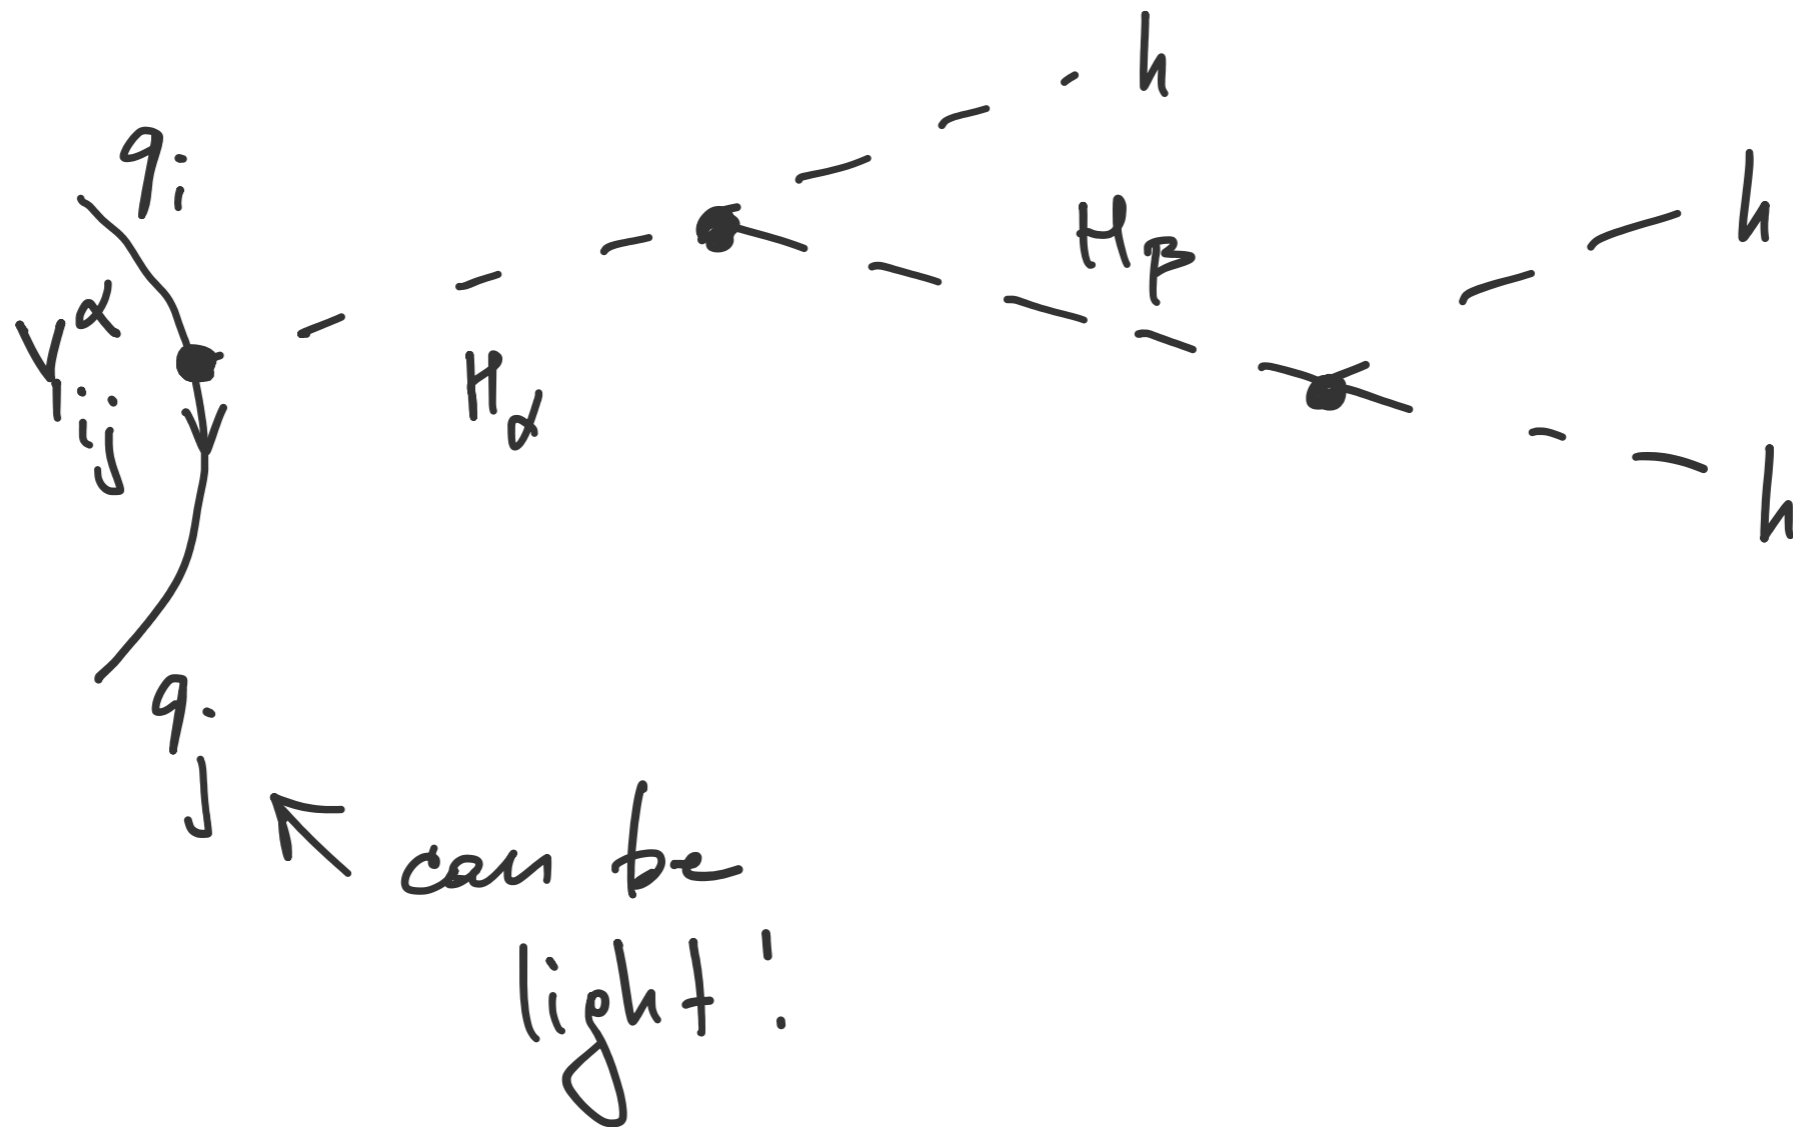 h
q_i
h
H_β
Y^α_{ij}
H_α
h
q_j
can be
light!